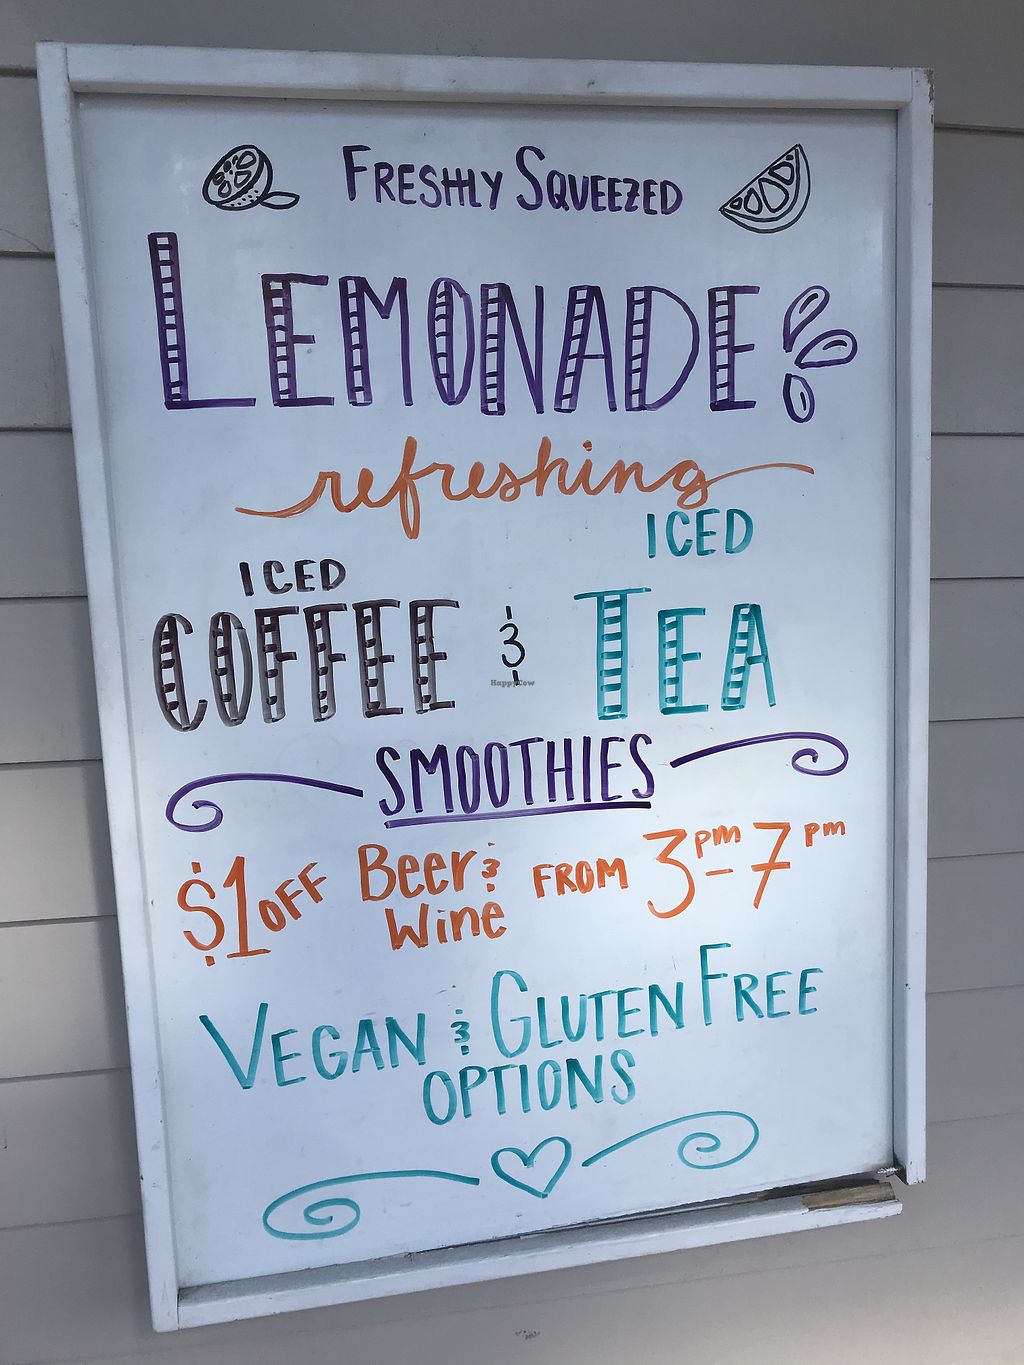 FRESHLY SQUEEZED
LEMONADE
refreshing
ICED COFFEE & ICED TEA
HappyCow
SMOOTHIES
$1 OFF Beer & Wine FROM 3pm-7pm
VEGAN & GLUTEN FREE
OPTIONS